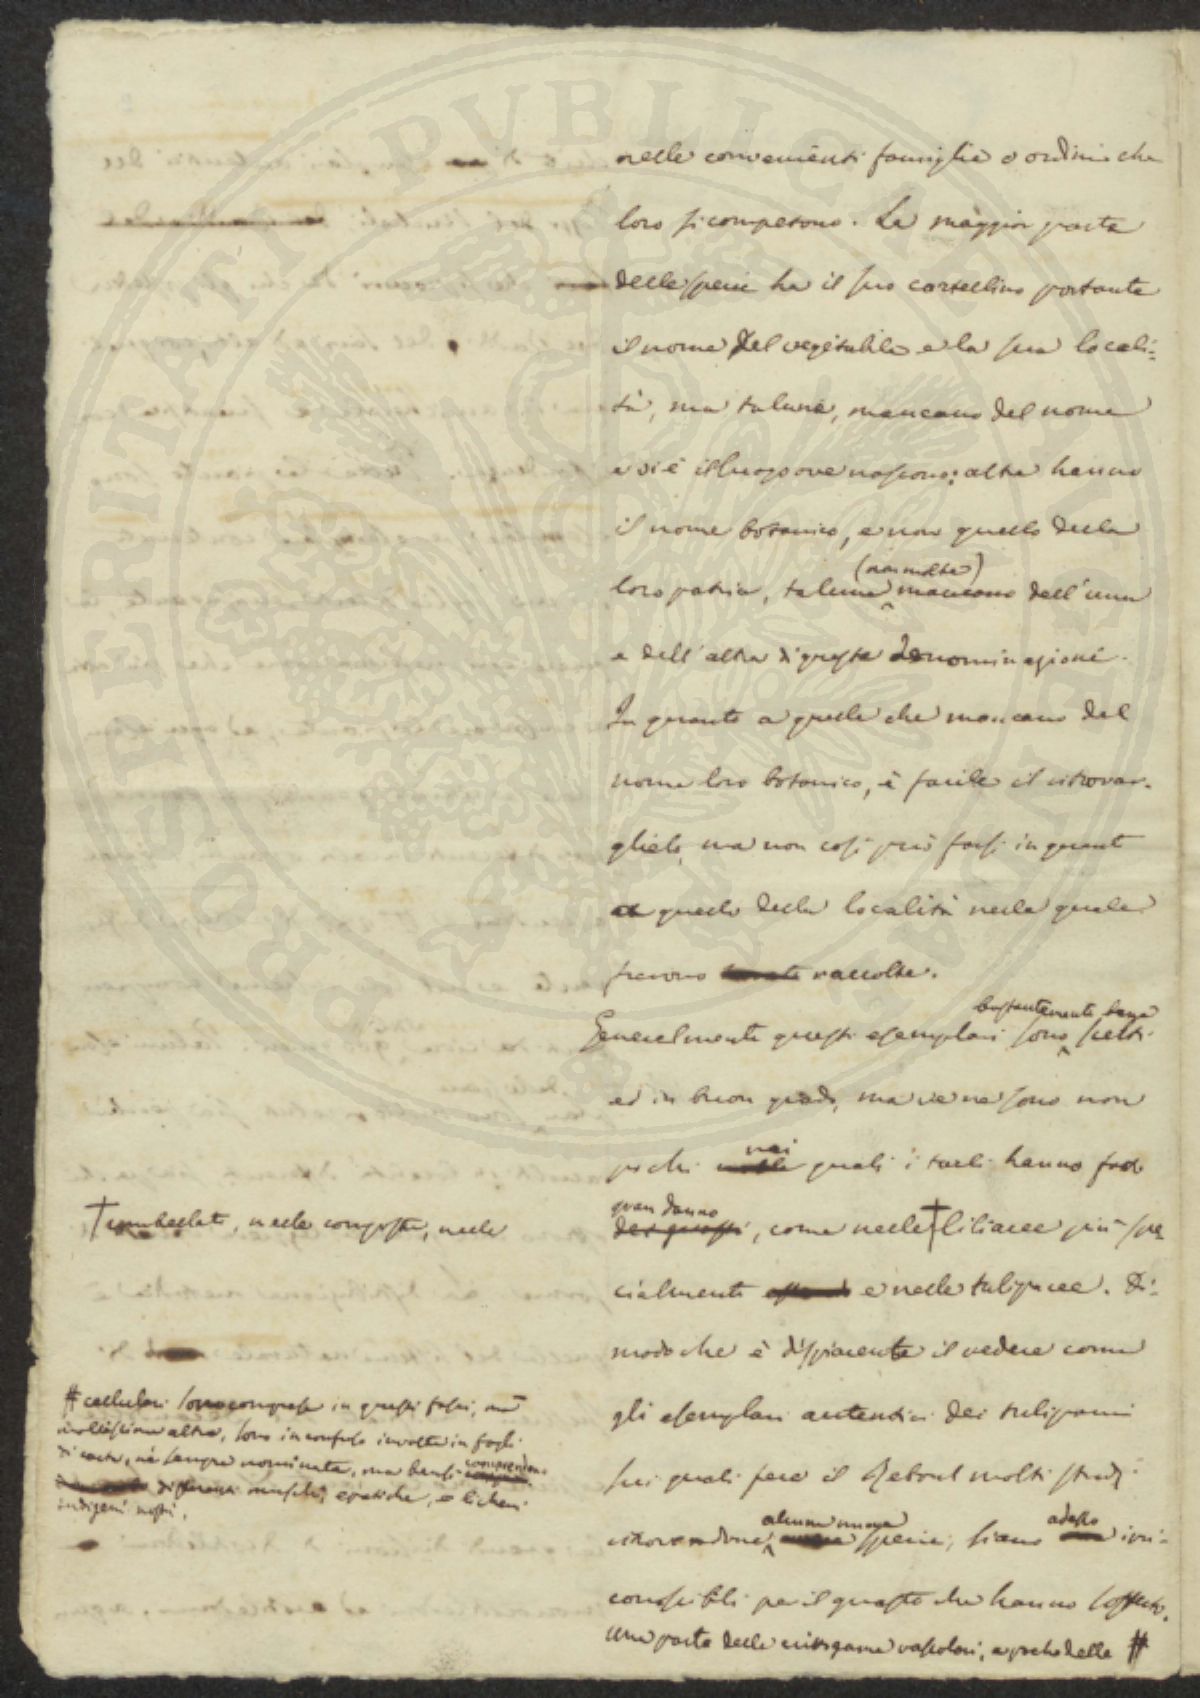 nelle convenienti famiglie o ordini che
loro si competono. La maggior parte
delle specie ha il suo cartellino portante
il nome del vegetabile e la sua locali=
tà, ma talune, mancano del nome
e vi è il luogo ove nascono; altre hanno
il nome botanico, e non quello della
loro patria, talune (non molte) mancano dell'una
e dell'altra di queste denominazioni.
In quanto a quelle che mancano del
nome loro botanico, è facile il ritrovar-
glielo, ma non così può farsi in quanto
a quello della località nella quale
furono raccolte.
Generalmente questi esemplari sono bastantemente bene scelti
ed in buon grado, ma ve ne sono non
pochi nei quali i tarli hanno fatto
gran danno, come nelle † liliacee più spe
cialmente e nelle tulipacee. Di=
modo che è dispiacente il vedere come
gli esemplari autentici dei tulipani
sui quali fece il Reboul molti studi
ritrovandone alcune nuove specie, siano adesso iri=
conoscibili per il guasto che hanno sofferto.
Una parte delle crittogame vascolari, e poche delle #
† umbellate, nelle composte, nelle
# cellulari sono comprese in questi fasci, ma
moltissime altre, sono in confuso involte in fogli
di carta, nè sempre nominate, ma bensì comprendono
differenti muschi, epatiche, e licheni
indigeni nostri.
PROSPERITATI PUBLICAE AUGENDAE